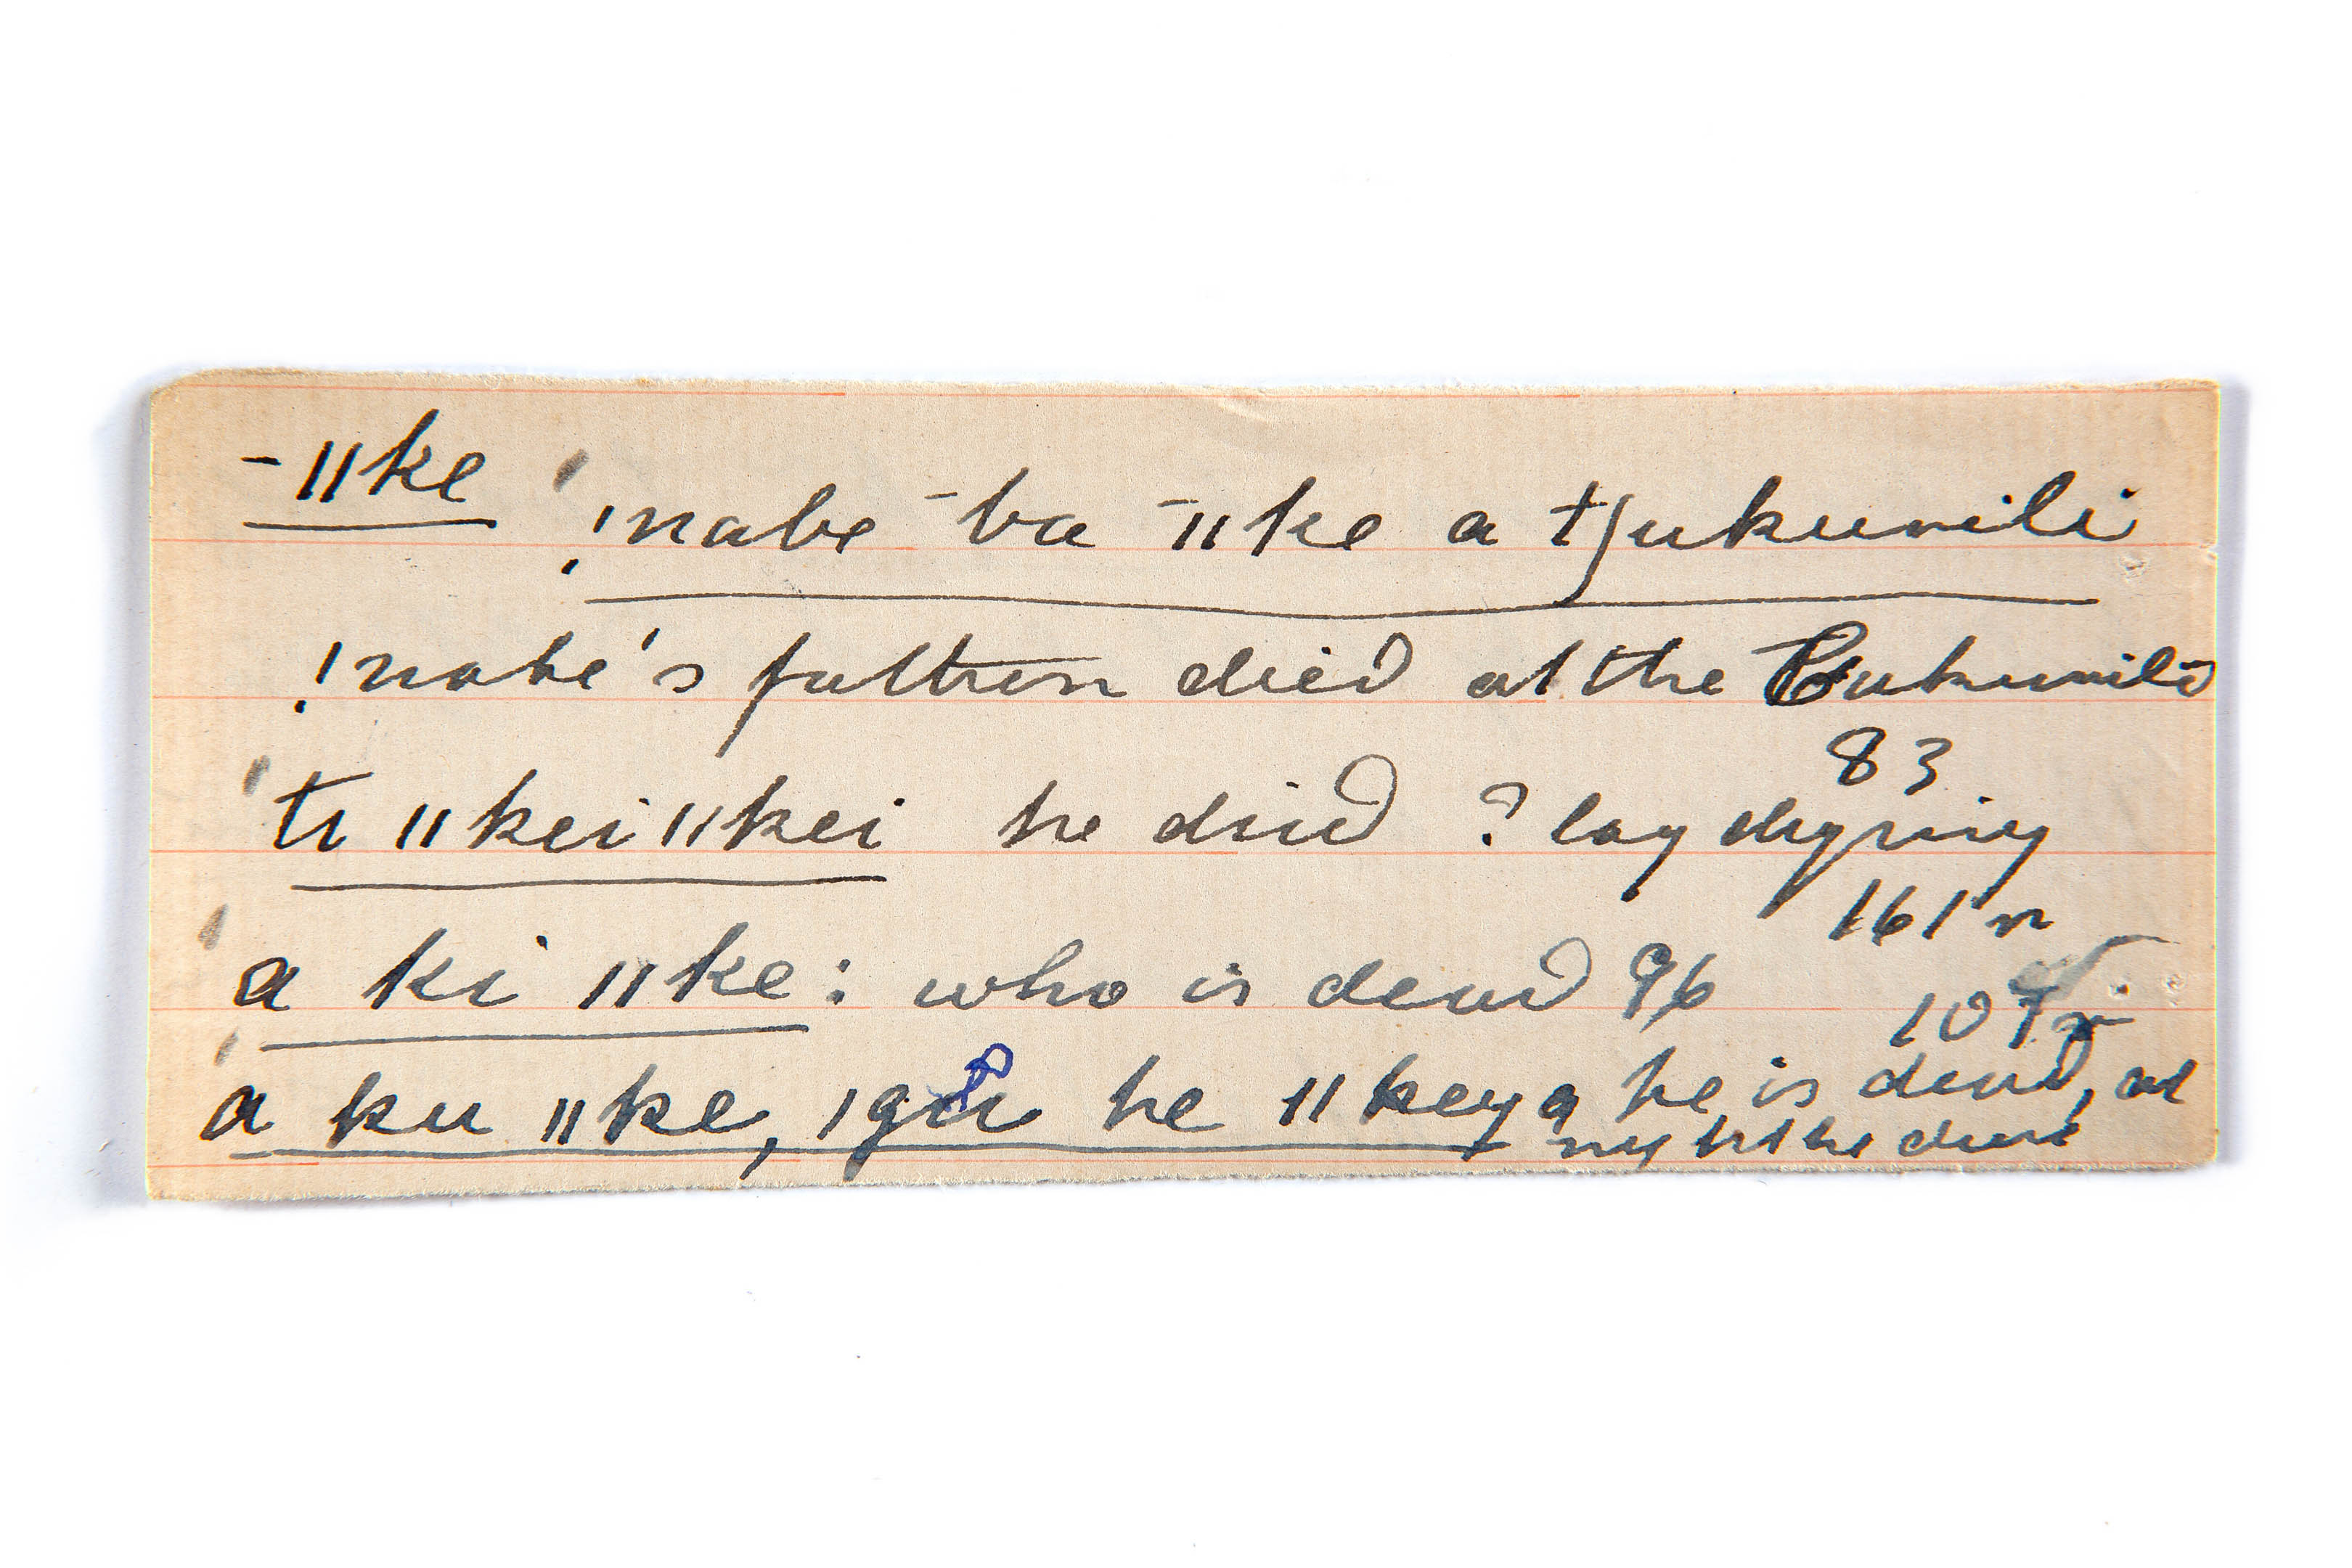 -ǁke ǃnabe ¯ba ¯ǁke a tʃukuvili
ǃnabe's father died at the Cukuvili
83
ti ǁkeiǁkei he died ? lay dying
161 r
a ki ǁke: who is dead 96
107 r
a ku ǁke, ǀgu he ǁkeya he is dead, at
night he died